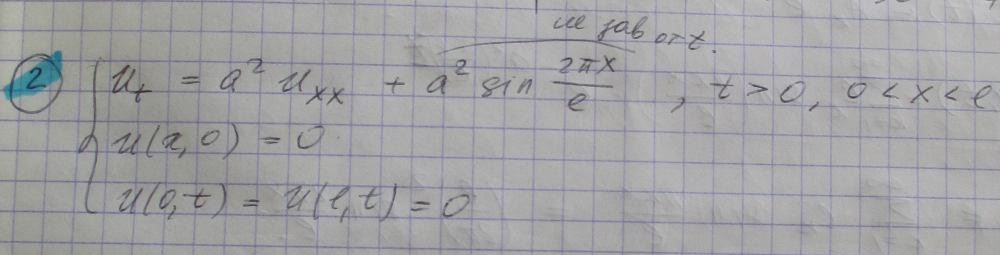 не зав от t.
2 { u_t = a² u_xx + a² sin 2πx/ℓ , t > 0, 0 < x < ℓ
u(x, 0) = 0
u(0, t) = u(ℓ, t) = 0